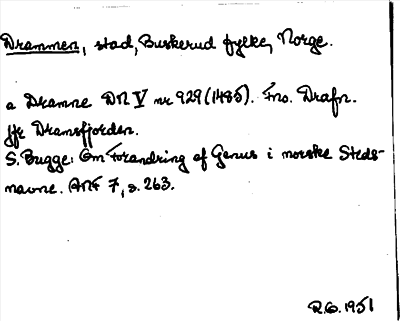 Drammen, stad, Buskerud fylke, Norge.
a Dramne DN V nr 929 (1485). Fno. Drafn.
Jfr Dramsfjorden.
S. Bugge: Om Forandring af Genus i norske Steds-
navne. ANF 7, s. 263.
R.G. 1951